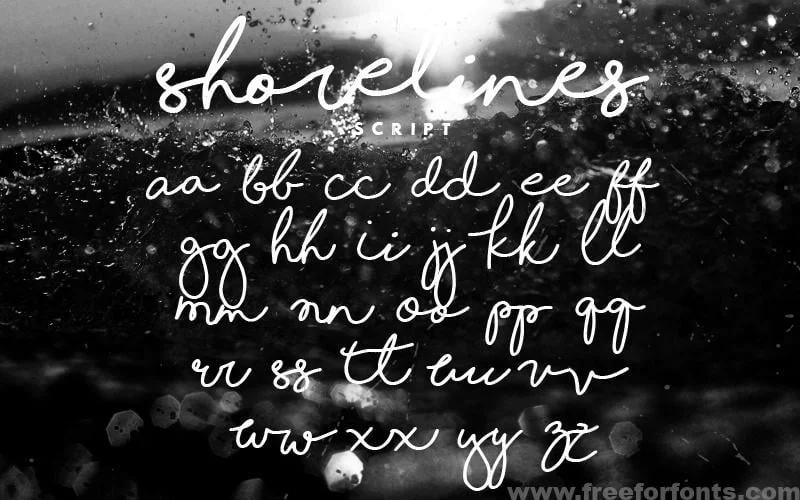 shorelines
SCRIPT
aa bb cc dd ee ff
gg hh ii jj kk ll
mm nn oo pp qq
rr ss tt uu vv
ww xx yy zz
www.freeforfonts.com